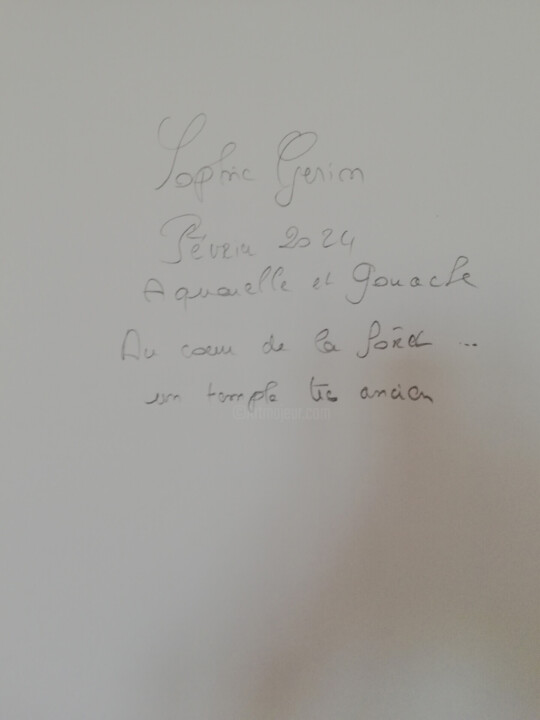 Sophie Gerin
Février 2024
Aquarelle et gouache
Au coeur de la forêt ...
un temple très ancien